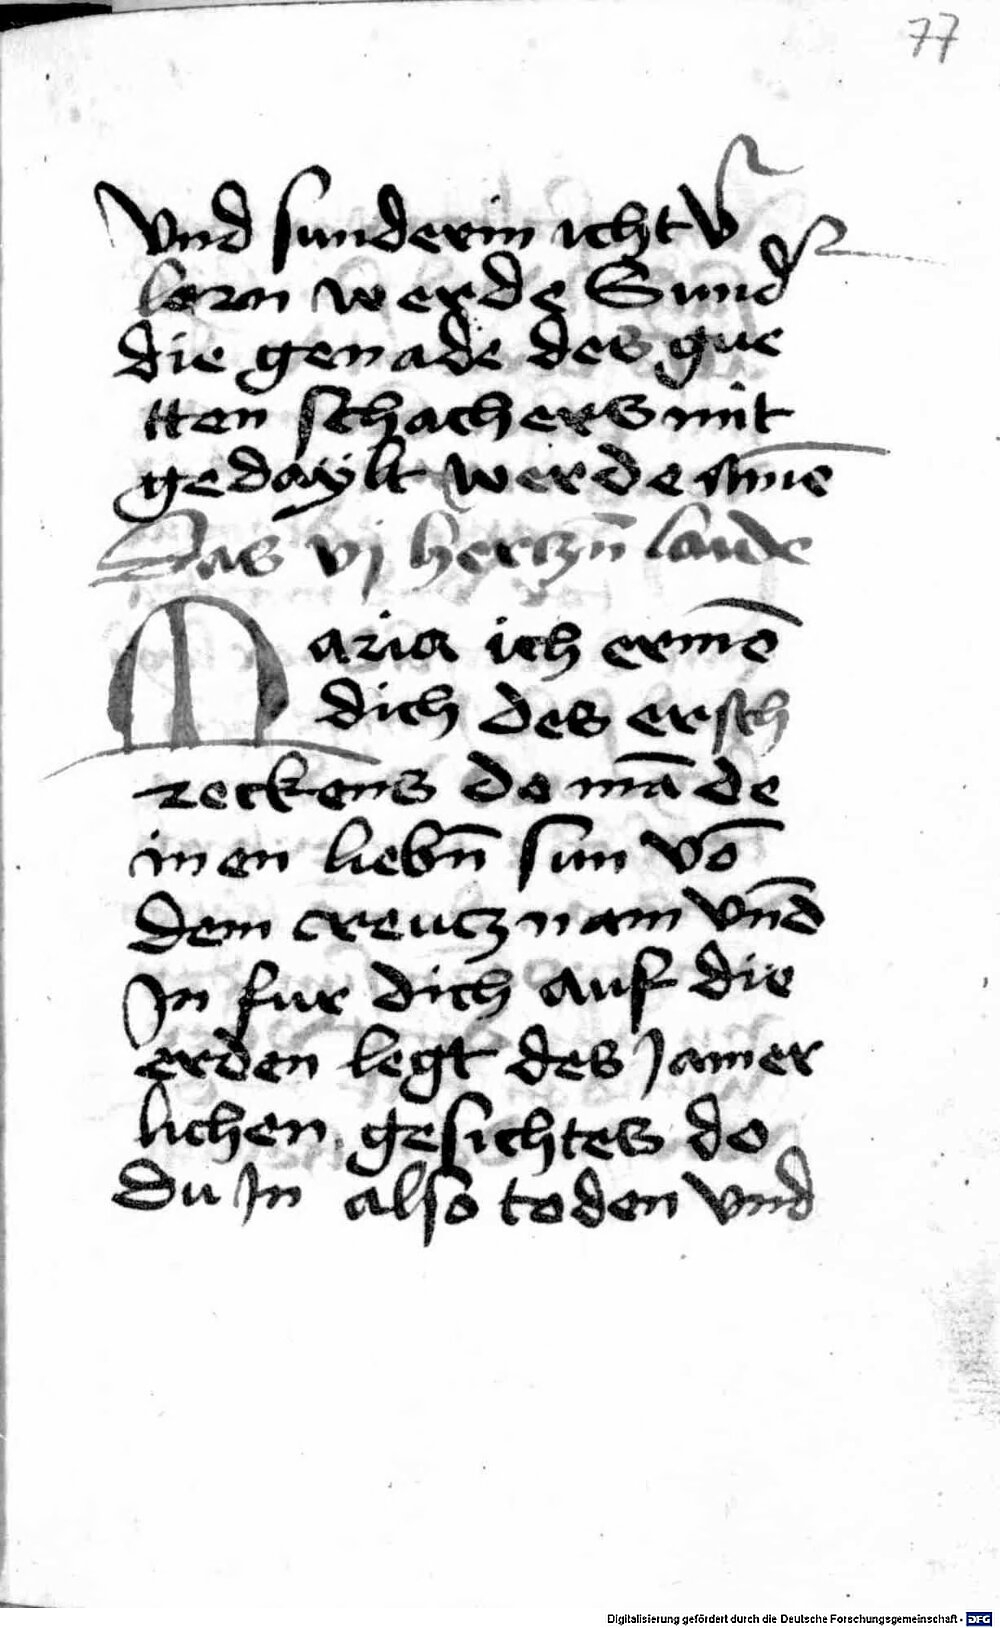 77
vnd sunderin icht v̾
lorn werde Sund̾
die genade des gue
tten schachers mit
gedaylt werde Amē
Das vj hertzn̄ laide
Maria ich ermē
dich des ersch
reckens do mā de
inen liebn̄ sun vō
dem creutz nam vn̄d
Jn fur dich auf die
erden legt des Jamer
lichen gesichtes do
du Jn also toden vnd
Digitalisierung gefördert durch die Deutsche Forschungsgemeinschaft - DFG